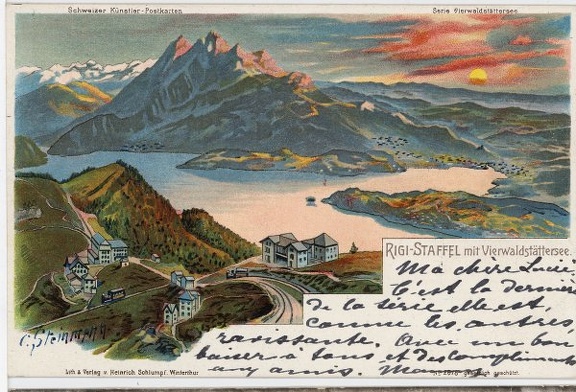 Schweizer Künstler-Postkarten
Serie Vierwaldstättersee
RIGI-STAFFEL mit Vierwaldstättersee.
Ma chère Louise
C'est la dernière
de la série elle est,
comme les autres,
ravissante. Avec un bon
baiser à tous et des compliments
aux amis.
C. Steinmann
Lith & Verlag v. Heinrich Schlumpf. Winterthur
gesetzlich geschützt.